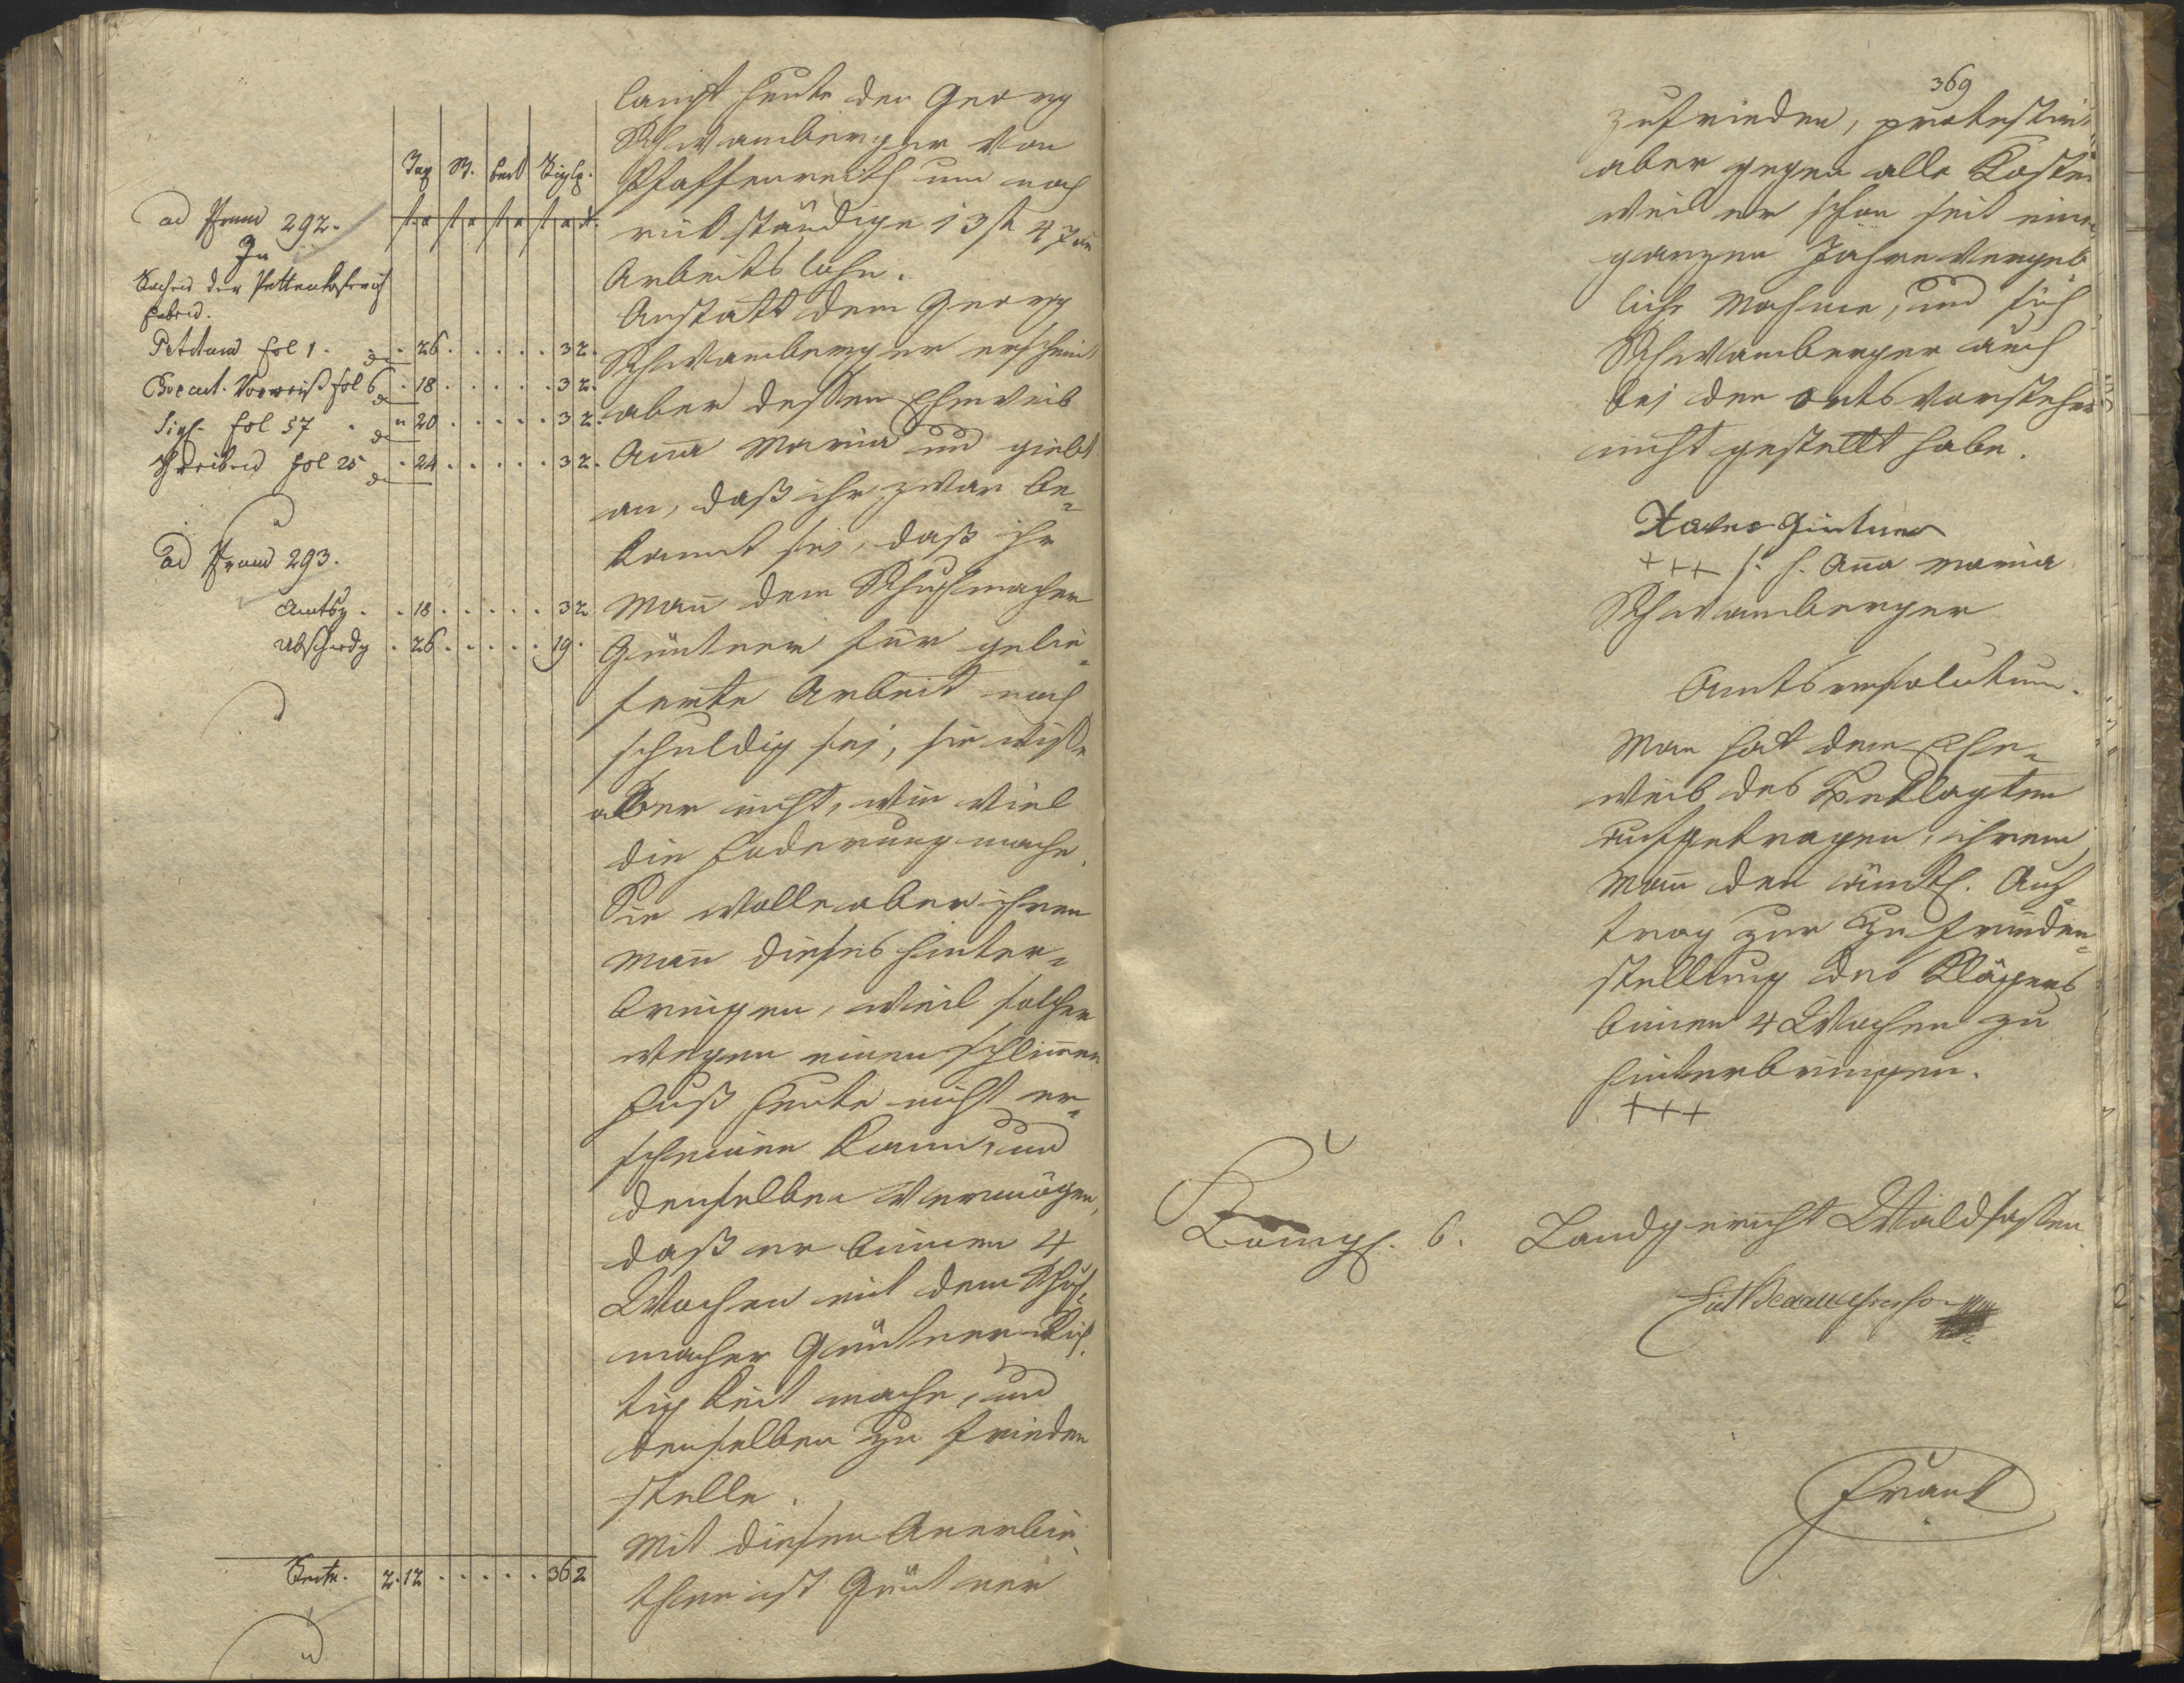 Tax St. bact Siglg.
ad Prenu 292.
In
Sachen der Pettenkoferisch
Petitum fol 1. . 26 . . . . . 32.
Decret. fol 6 . 18 . . . . . 32.
Sigl. fol 57 . 20 . . . . . 32.
Schreiben fol 25 . 24 . . . . . 32.
ad Prenu 293.
Amtsg. . 18 . . . . . 32
Abschiedg . 26 . . . . . 19.
Seite. 2.12 . . . . . . 362
langt heute den Georg
Schwamberger von
Pfaffenreith um noch
rükständige 13 fl 47 xr
Arbeitslohn.
Anstatt dem Georg
Schwamberger erscheint
aber dessen Eheweib
Aña Maria und giebt
an, daß ihr zwar be-
kannt sei, daß ihr
Mañ dem Schuhmacher
Güntner für gelie-
ferte Arbeit noch
schuldig sei, sie wisse
aber nicht, wie viel
die Foderung mache.
Sie wolle aber ihren
Mañ dieses hinter-
bringen, weil solcher
wegen einen schlim̄en
Fuß heute nicht er-
scheinen kann, und
denselben vermögen,
daß er binnen 4
Wochen mit dem Schuh-
macher Güntner Rich-
tigkeit mache, und
denselben zu frieden
stelle.
Mit diesen Anerbie-
then ist Güntner
369
zufrieden, protestirt
aber gegen alle Kosten
weil er schon seit einem
ganzen Jahre vergeb
lich mahne, und sich
Schwamberger auch
bei den Ortsvorsteher
nicht gestellt habe.
Xaver Güntner
+++ h. Aña Maria
Schwamberger
Amtsresolutum.
Man hat dem Ehe-
weib des Beklagten
aufgetragen, ihrem
Mañ den ämtl. Auf-
trag zur Zufrieden-
stellung des Klägers
binnen 4 Wochen zu
hinterbringen.
+++
Königl. b. Landgericht Waldsassen
Frank